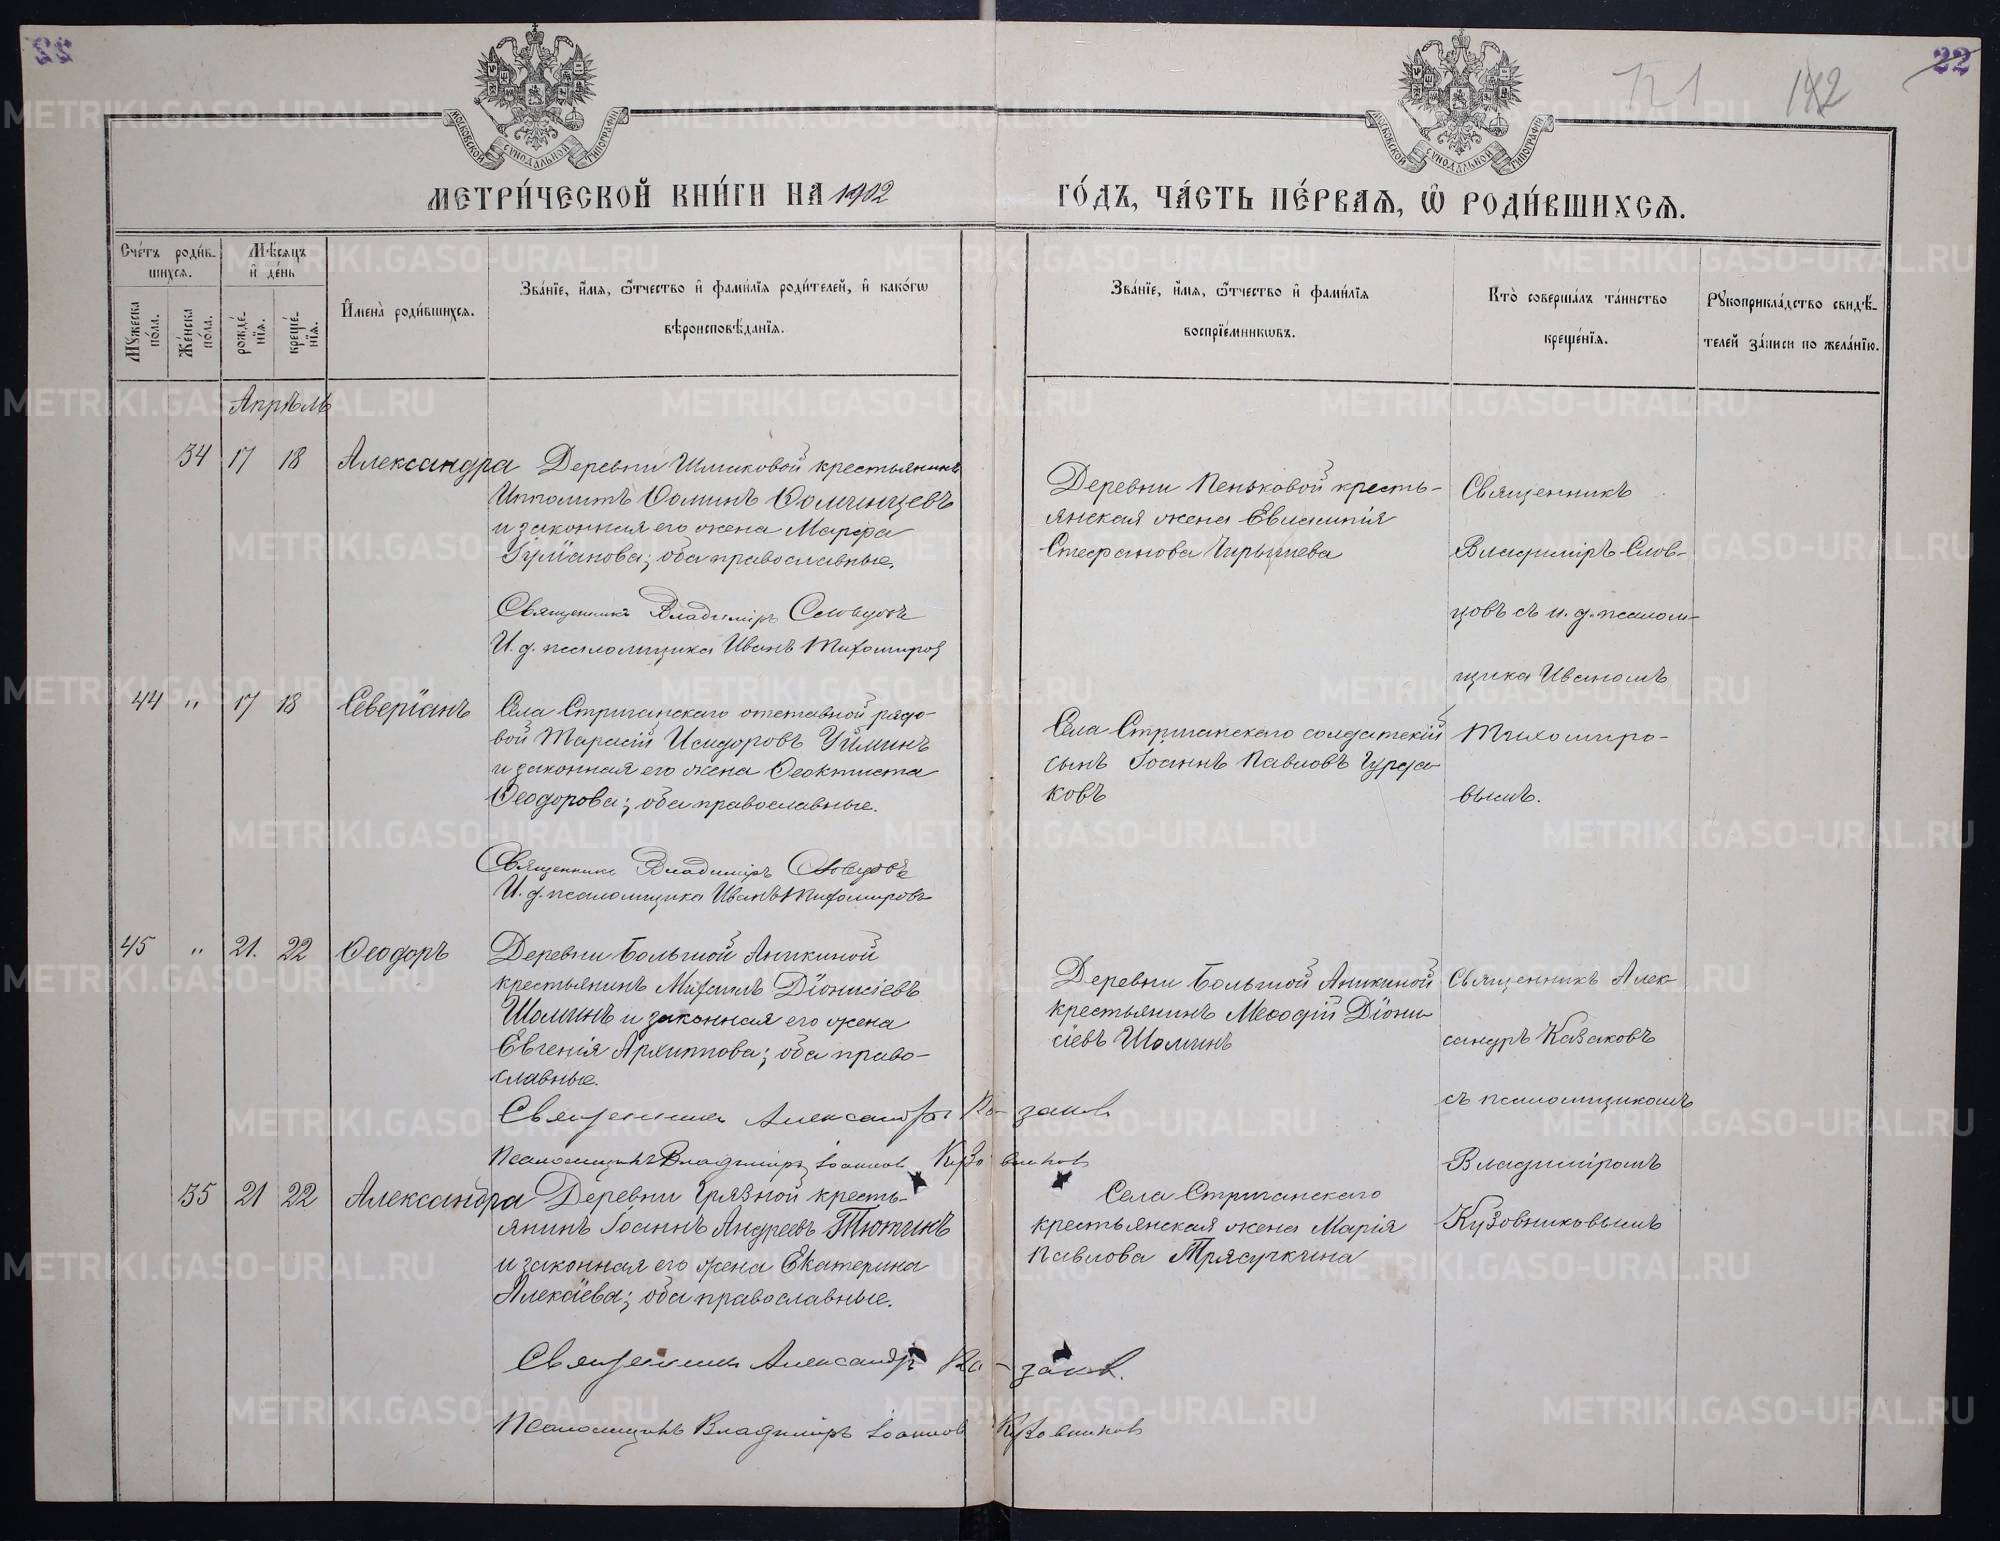 22
121
142
МОСКОВСКОЙ СѴНОДАЛЬНОЙ ТИПОГРАФІИ
МОСКОВСКОЙ СѴНОДАЛЬНОЙ ТИПОГРАФІИ
МЕТРИ́ЧЕСКОЙ КНИ́ГИ НА 1902
ГО́ДЪ, ЧА́СТЬ ПЕ́РВАѦ, Ѽ РОДИ́ВШИХСѦ.
Сче́тъ роди́в-
шихся.
Мѣ́сяцъ
и҆ де́нь
Мꙋ́жеска по́ла.
Же́нска по́ла.
рожде́-
нїя.
креще́-
нїя.
И҆мена̀ роди́вшихся.
Зва́нїе, и҆́мя, ѻ҆́тчество и҆ фами́лїя роди́телей, и҆ како́гѡ
вѣроисповѣ́данїя.
Зва́нїе, и҆́мя, ѻ҆́тчество и҆ фами́лїя
воспрїе́мникѡвъ.
Кто̀ соверша́лъ та́инство
креще́нїя.
Рꙋкоприкла́дство свидѣ́-
телей за́писи по жела́нїю.
Апрѣль
34 17 18 Александра Деревни Шмаковой крестьянинъ
Ипполитъ Ѳоминъ Ѳоминцевъ
и законная его жена Марѳа
Іуліанова; оба православные.
Священникъ Владиміръ Словцовъ
И. д. псаломщика Иванъ Тихомиров
Деревни Пеньковой кресть-
янская жена Евлампія
Стефанова Чирышева
Священникъ
Владиміръ Слов-
цовъ съ и. д. псалом-
щика Иваномъ
Тихомиро-
вымъ.
44 " 17 18 Северіанъ Села Стриганскаго отставной рядо-
вой Тарасій Исидоровъ Уйминъ
и законная его жена Ѳеоктиста
Ѳеодорова; оба православные.
Священникъ Владиміръ Словцовъ
И. д. псаломщика Иванъ Тихомировъ
Села Стриганскаго солдатскій
сынъ Іоаннъ Павловъ Гурза-
ковъ
45 " 21. 22 Ѳеодоръ Деревни Большой Аникиной
крестьянинъ Михаилъ Діонисіевъ
Шоминъ и законная его жена
Евгенія Архиппова; оба право-
славные.
Священникъ Александръ Ка-заковъ
Псаломщикъ Владиміръ Іоаннов Кузовников
Деревни Большой Аникиной
крестьянинъ Меѳодій Діони-
сіевъ Шоминъ
Священникъ Алек-
сандръ Казаковъ
съ псаломщикомъ
Владиміромъ
Кузовниковымъ
35 21 22 Александра Деревни Грязной кресть-
янинъ Іоаннъ Андреевъ Тютинъ
и законная его жена Екатерина
Алексіева; оба православные.
Священникъ Александръ Ка-заков.
Псаломщикъ Владиміръ Іоаннов Кузовников
Села Стриганскаго
крестьянская жена Марія
Павлова Трясучкина
METRIKI.GASO-URAL.RU